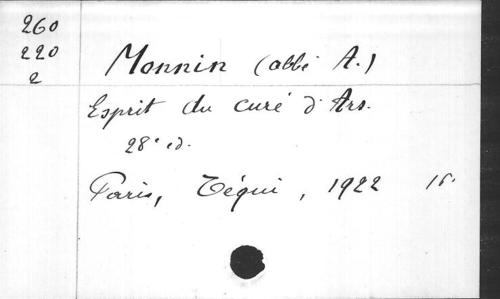 260
220
2
Monnin (abbé A.)
Esprit du curé d'Ars.
28e ed.
Paris, Téqui, 1922 16.